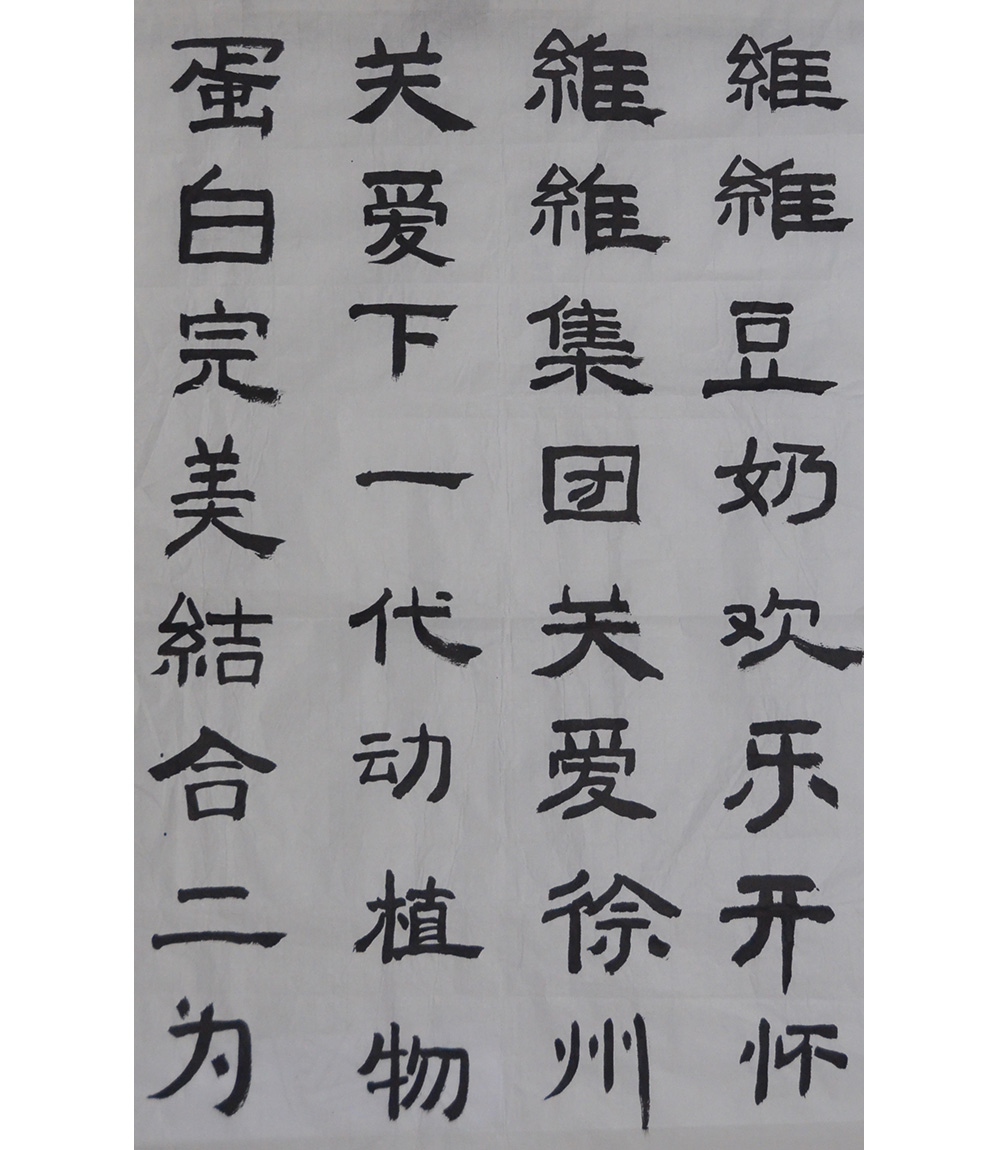 維維豆奶欢乐开怀
維維集团关爱徐州
关爱下一代动植物
蛋白完美結合二为